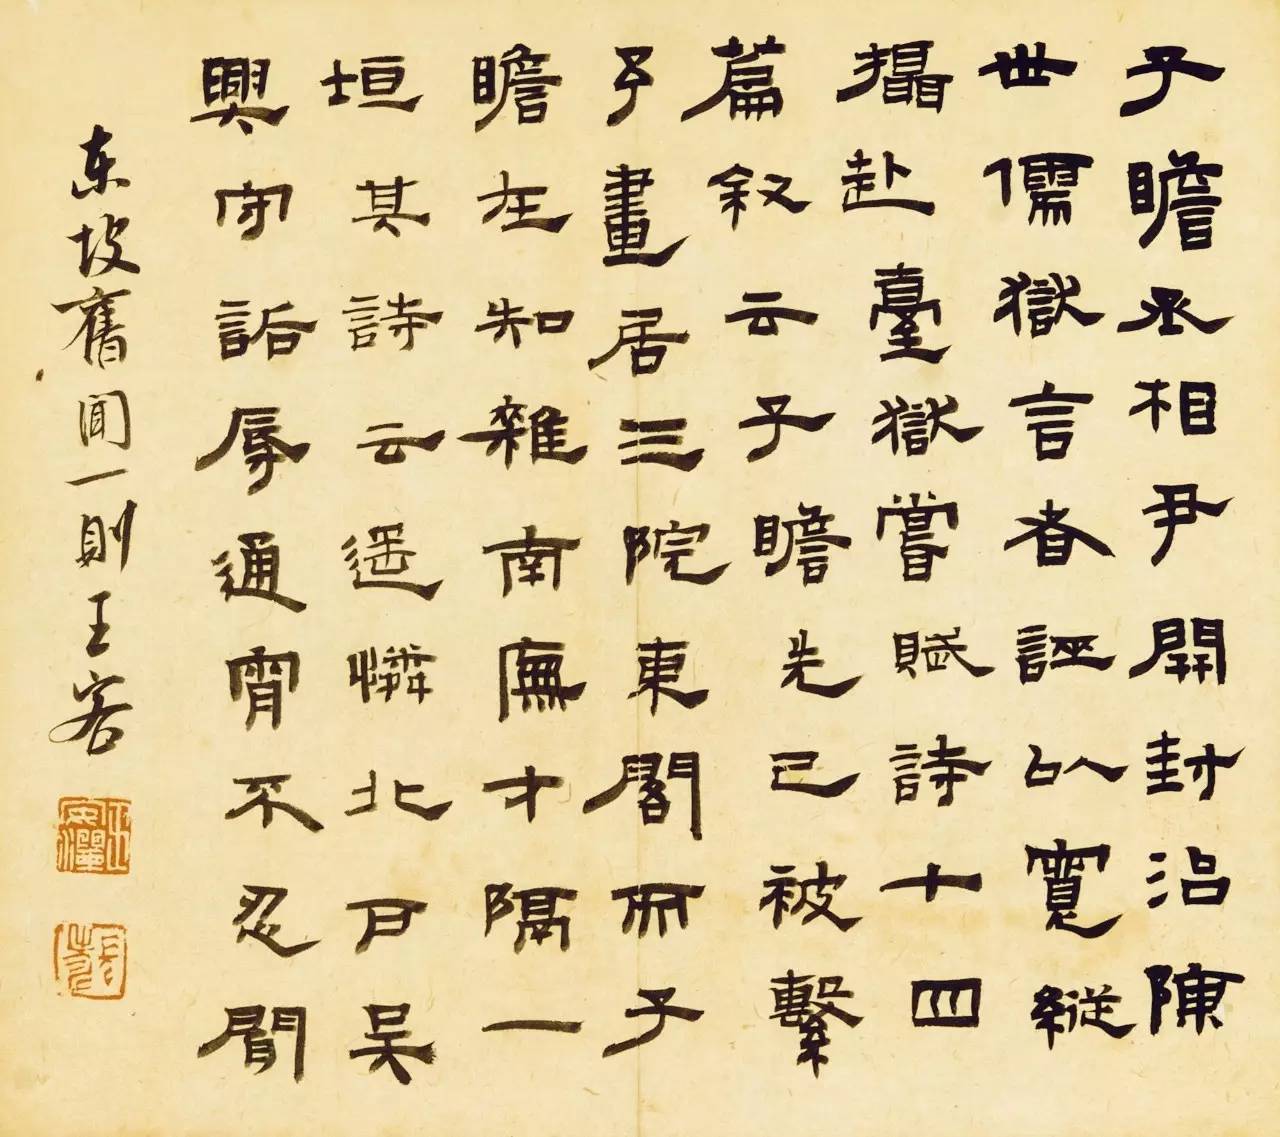 子瞻丞相尹開封治陳
世儒獄言者誣以寬縱
攝赴臺獄嘗賦詩十四
篇叙云子瞻先已被繫
予晝居三院東閣而子
瞻在知雜南廡才隔一
垣其詩云遥憐北戶吳
興守詬辱通宵不忍聞
東坡舊聞一則王客